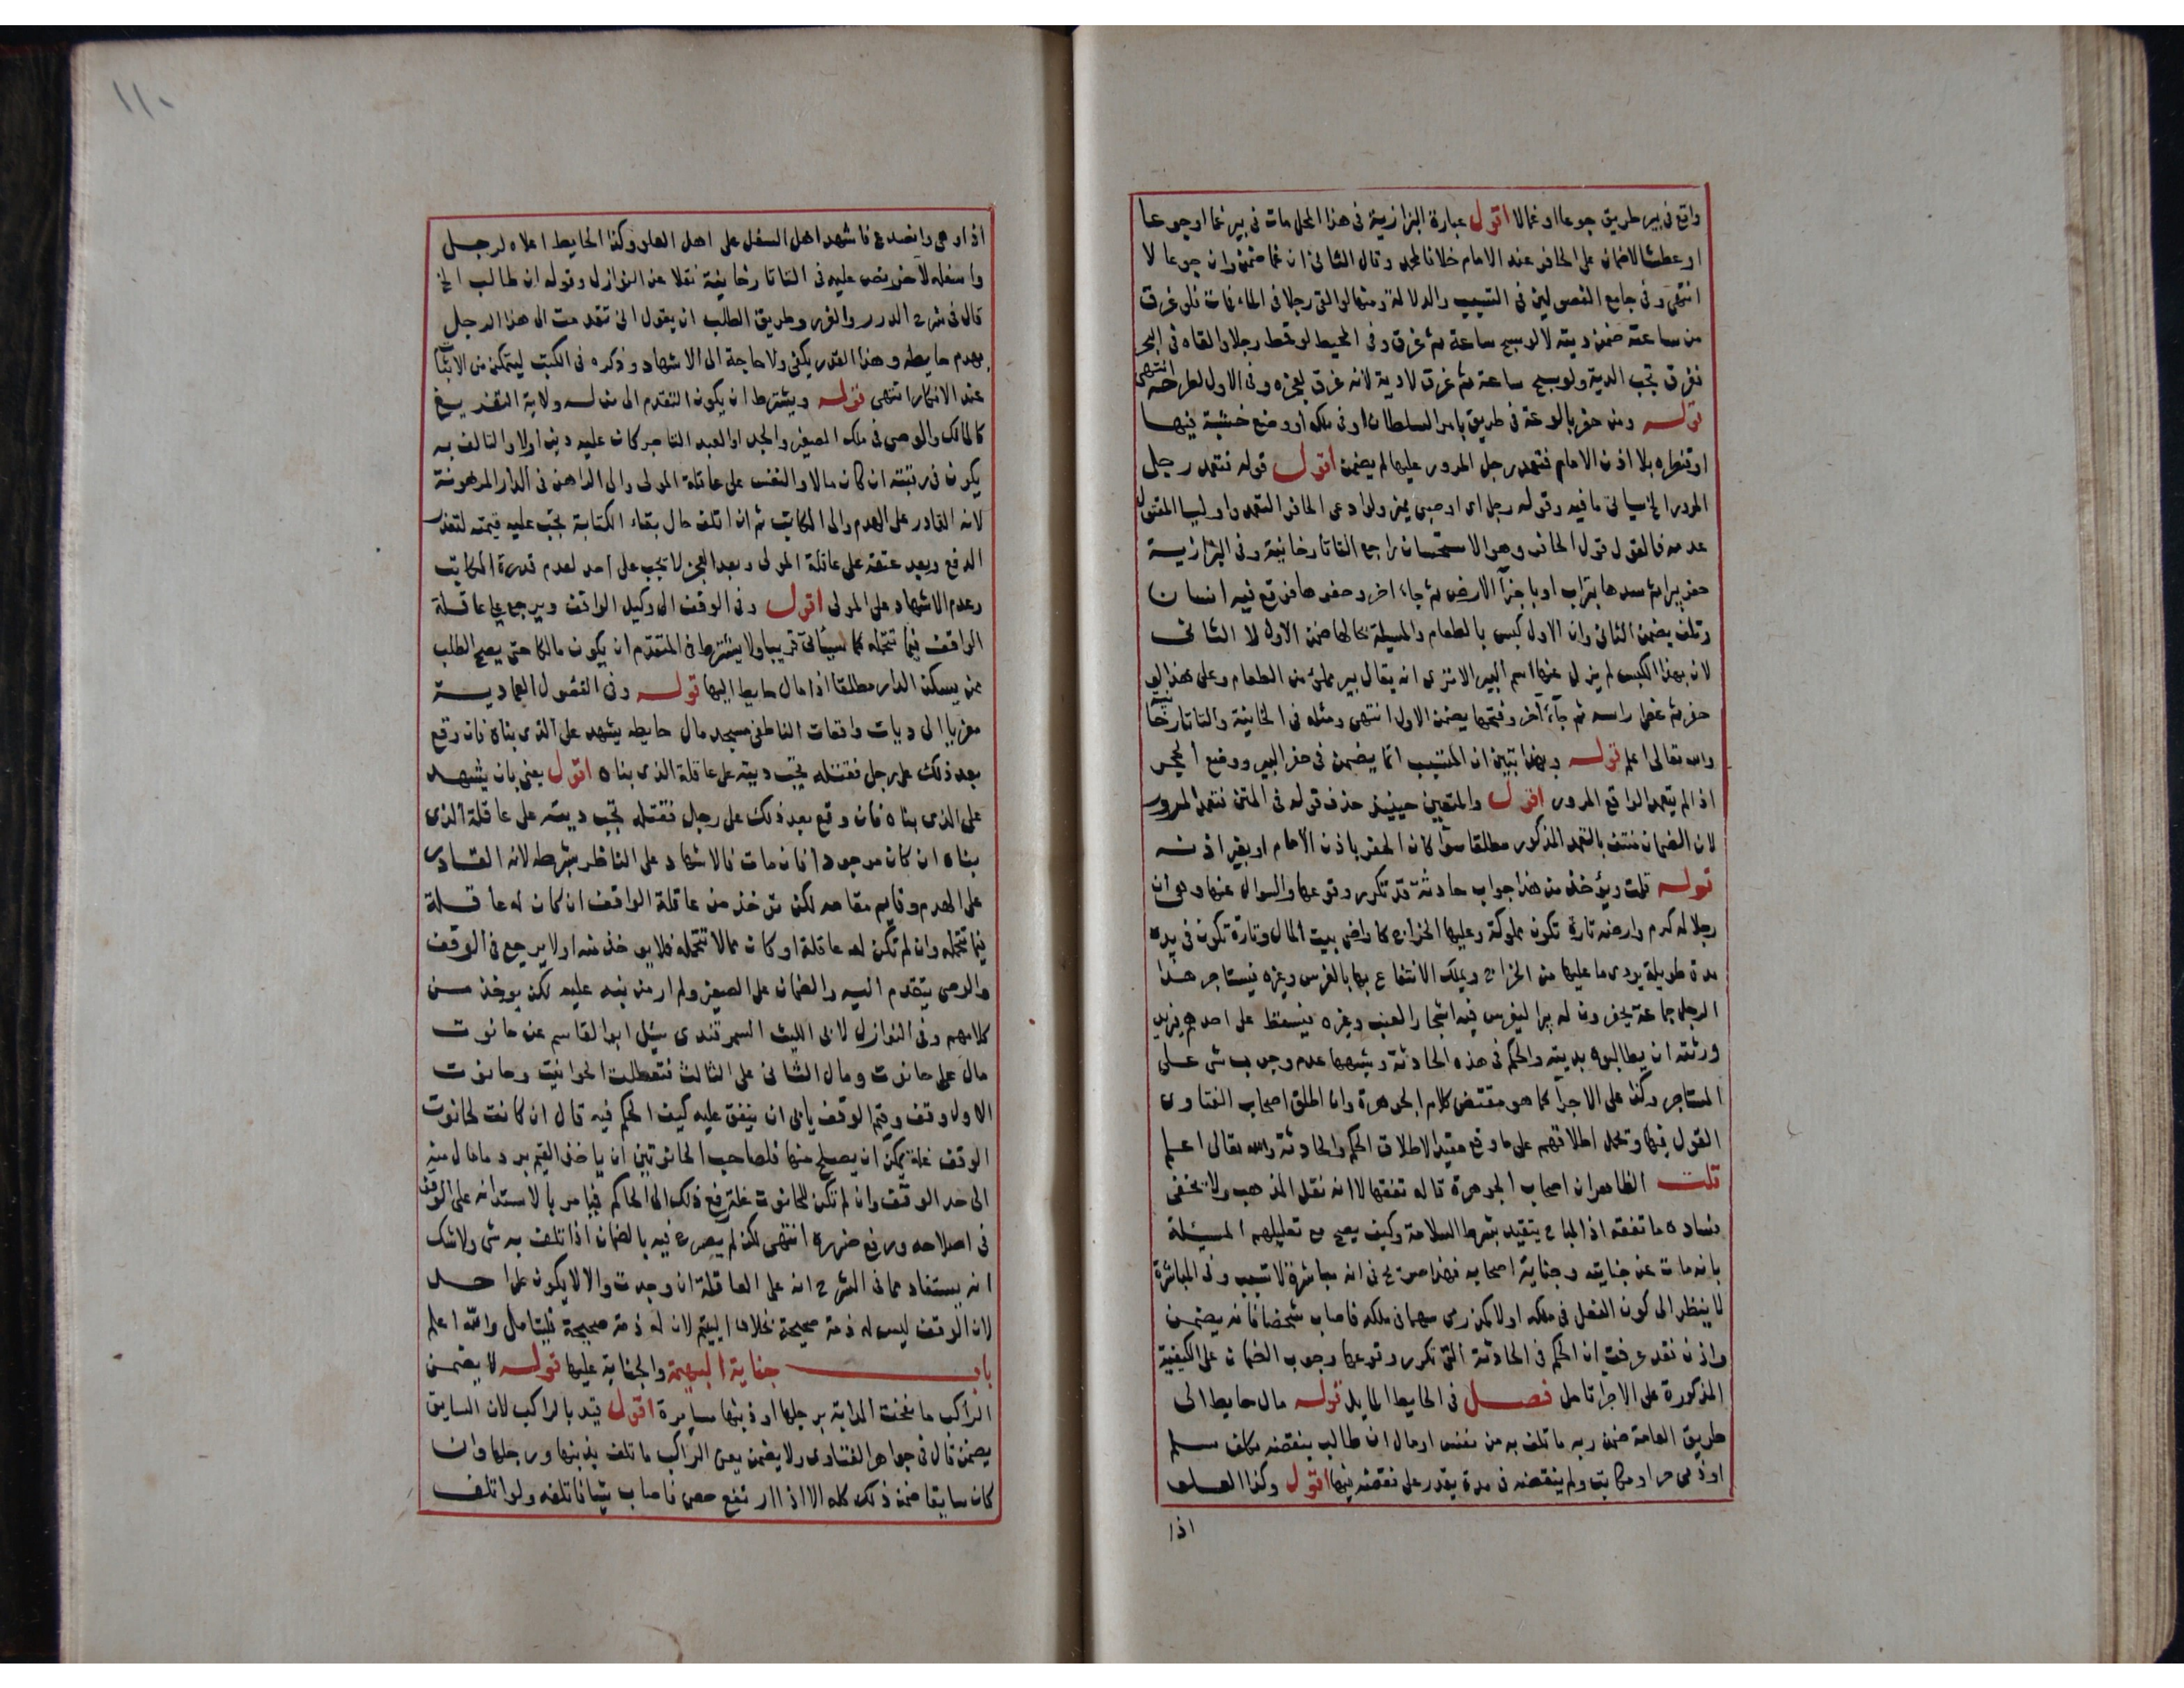 واقع في بير طريق جوعا او غما لا اقول عبارة البزازية في هذا المحل مات في بير غما او جوعا
او عطشا لا ضمان على الحافر عند الامام خلافا لمحمد وقال الثاني ان غما ضمن وان جوعا لا
انتهى وفي جامع الفصولين في التسبب والدلالة ومثها لو القى رجلا في الماء فمات فلو غرق
من ساعته ضمن ديته لا لو سبح ساعة ثم غرق وفي المحيط لو قمط رجلا والقاه في البحر
فغرق تجب الدية ولو سبح ساعة ثم غرق لا دية لانه غرق لعجزه وفي الاول لطرحه انتهى
قوله ومن حفر بالوعة في طريق بامر السلطان او في ملكه او وضع خشبة فيها
او قنطره بلا اذن الامام فتعمد رجل المرور عليها لم يضمن اقول قوله فتعمد رجل
المرور الخ سياتي ما فيه وقوله رجل اي او صبي يميز ولو ادعى الحافر التعمد واوليا المقتول
عدمه فالقول قول الحافر وهو الاستحسان راجع التاتارخانية وفي البزازية
حفر بيرا ثم سدها بتراب او باجزآ الارض ثم جاء اخر وحفرها فوقع فيه انسان
وتلف يضمن الثاني وان الاول كبس بالطعام والمسيلة بحالها ضمن الاول لا الثاني
لان بهذا الكبس لم يزل عنها اسم البير الا ترى انه يقال بير مملئ من الطعام وعلى هذا لو
حفر ثم غطى راسه ثم جآء آخر وفتحها يضمن الاول انتهى ومثله في الخانية والتاتارخانية
والله تعالى اعلم قوله وبهذا تبين ان المتسبب انما يضمن في حفر البير ووضع الحجر
اذا لم يتعمد الواقع المرور اقول والمتعين حينيذ حذف قوله في المتن فتعمد المرور
لان الضمان منتف بالتعمد المذكور مطلقا سوآ كان الحفر باذن الامام او بغير اذنه
قوله قلت ويؤخذ من هذا جواب حادثة قد تكرر وقوعها والسوال عنها وهي ان
رجلا له كرم وارضه تارة تكون مملوكة وعليها الخراج كاراضي بيت المال وتارة تكون في يده
مدة طويلة يودي ما عليها من الخراج ويملك الانتفاع بها بالغرس وغيره فيستاجر هذا
الرجل جماعة يحفرون له بيرا ليغرس فيه اشجار العنب وغيره فيسقط على احدهم فيريد
ورثته ان يطالبوه بديته والحكم في هذه الحادثة وشبهها عدم وجوب شي على
المستاجر وكذا على الاجرآ كما هو مقتضى كلام الجوهرة وان اطلق اصحاب الفتاوى
القول فيها وتحمل اطلاقهم على ما وقع مقيدا لاطلاق الحكم والحادثة والله تعالى اعلم
قلت الظاهر ان اصحاب الجوهرة قاله تفقها لا انه نقل المذهب ولا يخفى
فساده ما تفقه اذ المباح يتقيد بشرط السلامة وكيف يصح مع تعليلهم المسيلة
بانه مات عن جنايته وجناية اصحابه فهذا صريح في انه مباشرة لا تسبب وفي المباشرة
لا ينظر الى كون الفعل في ملكه او لا كمن رمى سهما في ملكه فاصاب شخصا فانه يضمن
واذن فقد عرفت ان الحكم في الحادثة التي تكرر وقوعها وجوب الضمان على الكيفية
المذكورة على الاجرا تامل فصل في الحايط المايل قوله مال حايط الى
طريق العامة ضمن ربه ما تلف به من نفس او مال ان طالب بنقضه مكلف مسلم
او ذمي حر او مكاتب ولم ينقضه في مدة يقدر على نقضه فيها اقول وكذا العلو
اذا
١١٠
اذا وهى وانصدع فاشهد اهل السفل على اهل العلو وكذا الحايط اعلاه لرجل
واسفله لآخر نص عليه في التاتارخانية نقلا عن النوازل وقوله ان طالب الخ
قال في شرح الدرر والغرر وطريق الطلب ان يقول اني تقدمت الى هذا الرجل
بهدم حايطه وهذا القدر يكفي ولا حاجة الى الاشهاد وذكره في الكتب ليتمكن من الاثبات
عند الانكار انتهى قوله ويشترط ان يكون التقدم الى من له ولاية التفريغ
كالمالك والوصي في ملك الصغير والجد او العبد التاجر كان عليه دين اولا والتالف به
يكون في رقبته ان كان مالا والنفس على عاقلة المولى والى الراهن في الدار المرهونة
لانه القادر على الهدم والى المكاتب ثم ان اتلف حال بقاء الكتابة تجب عليه قيمته لتعذر
الدفع وبعد عتقه على عاقلة المولى وبعد العجز لا يجب على احد لعدم قدرة المكاتب
وعدم الاشهاد على المولى اقول وفي الوقف الى وكيل الواقف ويرجع على عاقلة
الواقف فيما تتحمله كما سياتي قريبا ولا يشترط في المتقدم ان يكون مالكا حتى يصح الطلب
ممن يسكن الدار مطلقا اذا مال حايط اليها قوله وفي الفصول العمادية
معزيا الى ديات واقعات الناطفي مسجد مال حايطه يشهد على الذي بناه فان وقع
بعد ذلك على رجل فقتله تجب ديته على عاقلة الذي بناه اقول يعني بان يشهد
على الذي بناه فان وقع بعد ذلك على رجل فقتله تجب ديته على عاقلة الذي
بناه ان كان موجودا فان مات فالاشهاد على الناظر بشرطه لانه القادر
على الهدم وقايم مقامه لكن توخذ من عاقلة الواقف ان كان له عاقلة
فيما تتحمله وان لم تكن له عاقلة او كان مما لا تتحمله فلا يوخذ منه اولا يرجع في الوقف
والوصي يتقدم اليه والضمان على الصغير ولم ار من نبه عليه لكن يوخذ من
كلامهم وفي النوازل لابي الليث السمرقندي سيل ابو القاسم عن حانوت
مال على حانوت ومال الثاني على الثالث فتعطلت الحوانيت وحانوت
الاول وقف وقيم الوقف يابى ان ينفق عليه كيف الحكم فيه قال ان كانت لحانوت
الوقف غلة يمكن ان يصلح منها فلصاحب الحانوتين ان ياخذ القيم برد ما مال منه
الى حد الوقف وان لم تكن للحانوت غلة رفع ذلك الى الحاكم فيامر بالاستدانه على الوقف
في اصلاحه ورفع ضرره انتهى لكن لم يصرح فيه بالضمان اذا تلف به شي ولا شك
انه يستفاد مما في الشرح انه على العاقلة ان وجدت والا لا يكون على احد
لان الوقف ليس له ذمة صحيحة بخلاف اليتيم لان له ذمة صحيحة فليتامل والله اعلم
باب جناية البهيمة والجناية عليها قوله لا يضمن
الراكب ما نفحت الدابة برجلها او ذنبها سايرة اقول قيد بالراكب لان السايق
يضمن قال في جواهر الفتاوى ولا يضمن يعني الراكب ما تلف بذنبها ورجلها وان
كان سايقا ضمن ذلك كله الا اذا ارتفع حصى فاصاب شيا فاتلفه ولو اتلف